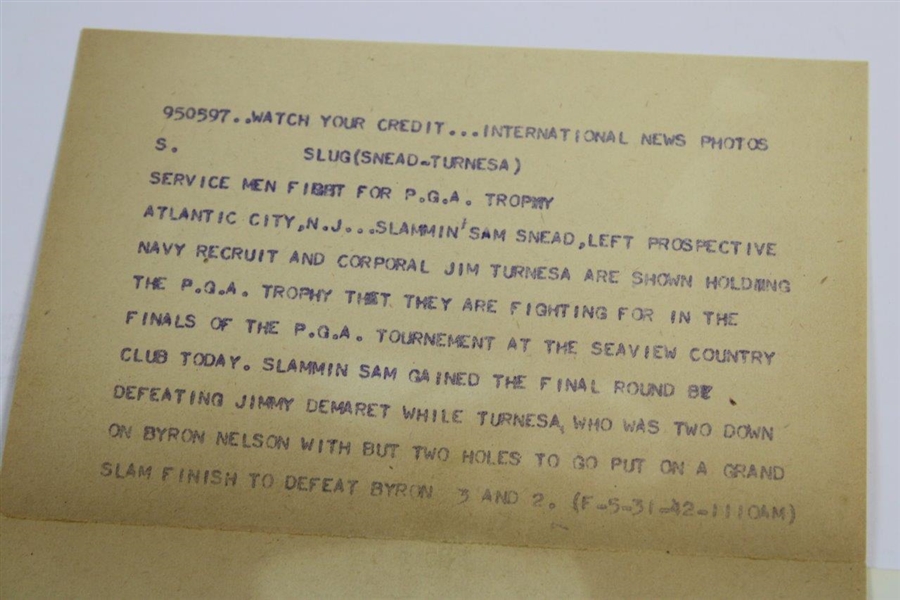 950597..WATCH YOUR CREDIT...INTERNATIONAL NEWS PHOTOS
S. SLUG(SNEAD-TURNESA)
SERVICE MEN FIGHT FOR P.G.A. TROPHY
ATLANTIC CITY,N.J...SLAMMIN'SAM SNEAD,LEFT PROSPECTIVE
NAVY RECRUIT AND CORPORAL JIM TURNESA ARE SHOWN HOLDING
THE P.G.A. TROPHY THAT THEY ARE FIGHTING FOR IN THE
FINALS OF THE P.G.A. TOURNEMENT AT THE SEAVIEW COUNTRY
CLUB TODAY. SLAMMIN SAM GAINED THE FINAL ROUND BY
DEFEATING JIMMY DEMARET WHILE TURNESA, WHO WAS TWO DOWN
ON BYRON NELSON WITH BUT TWO HOLES TO GO PUT ON A GRAND
SLAM FINISH TO DEFEAT BYRON 3 AND 2. (F-5-31-42-1110AM)